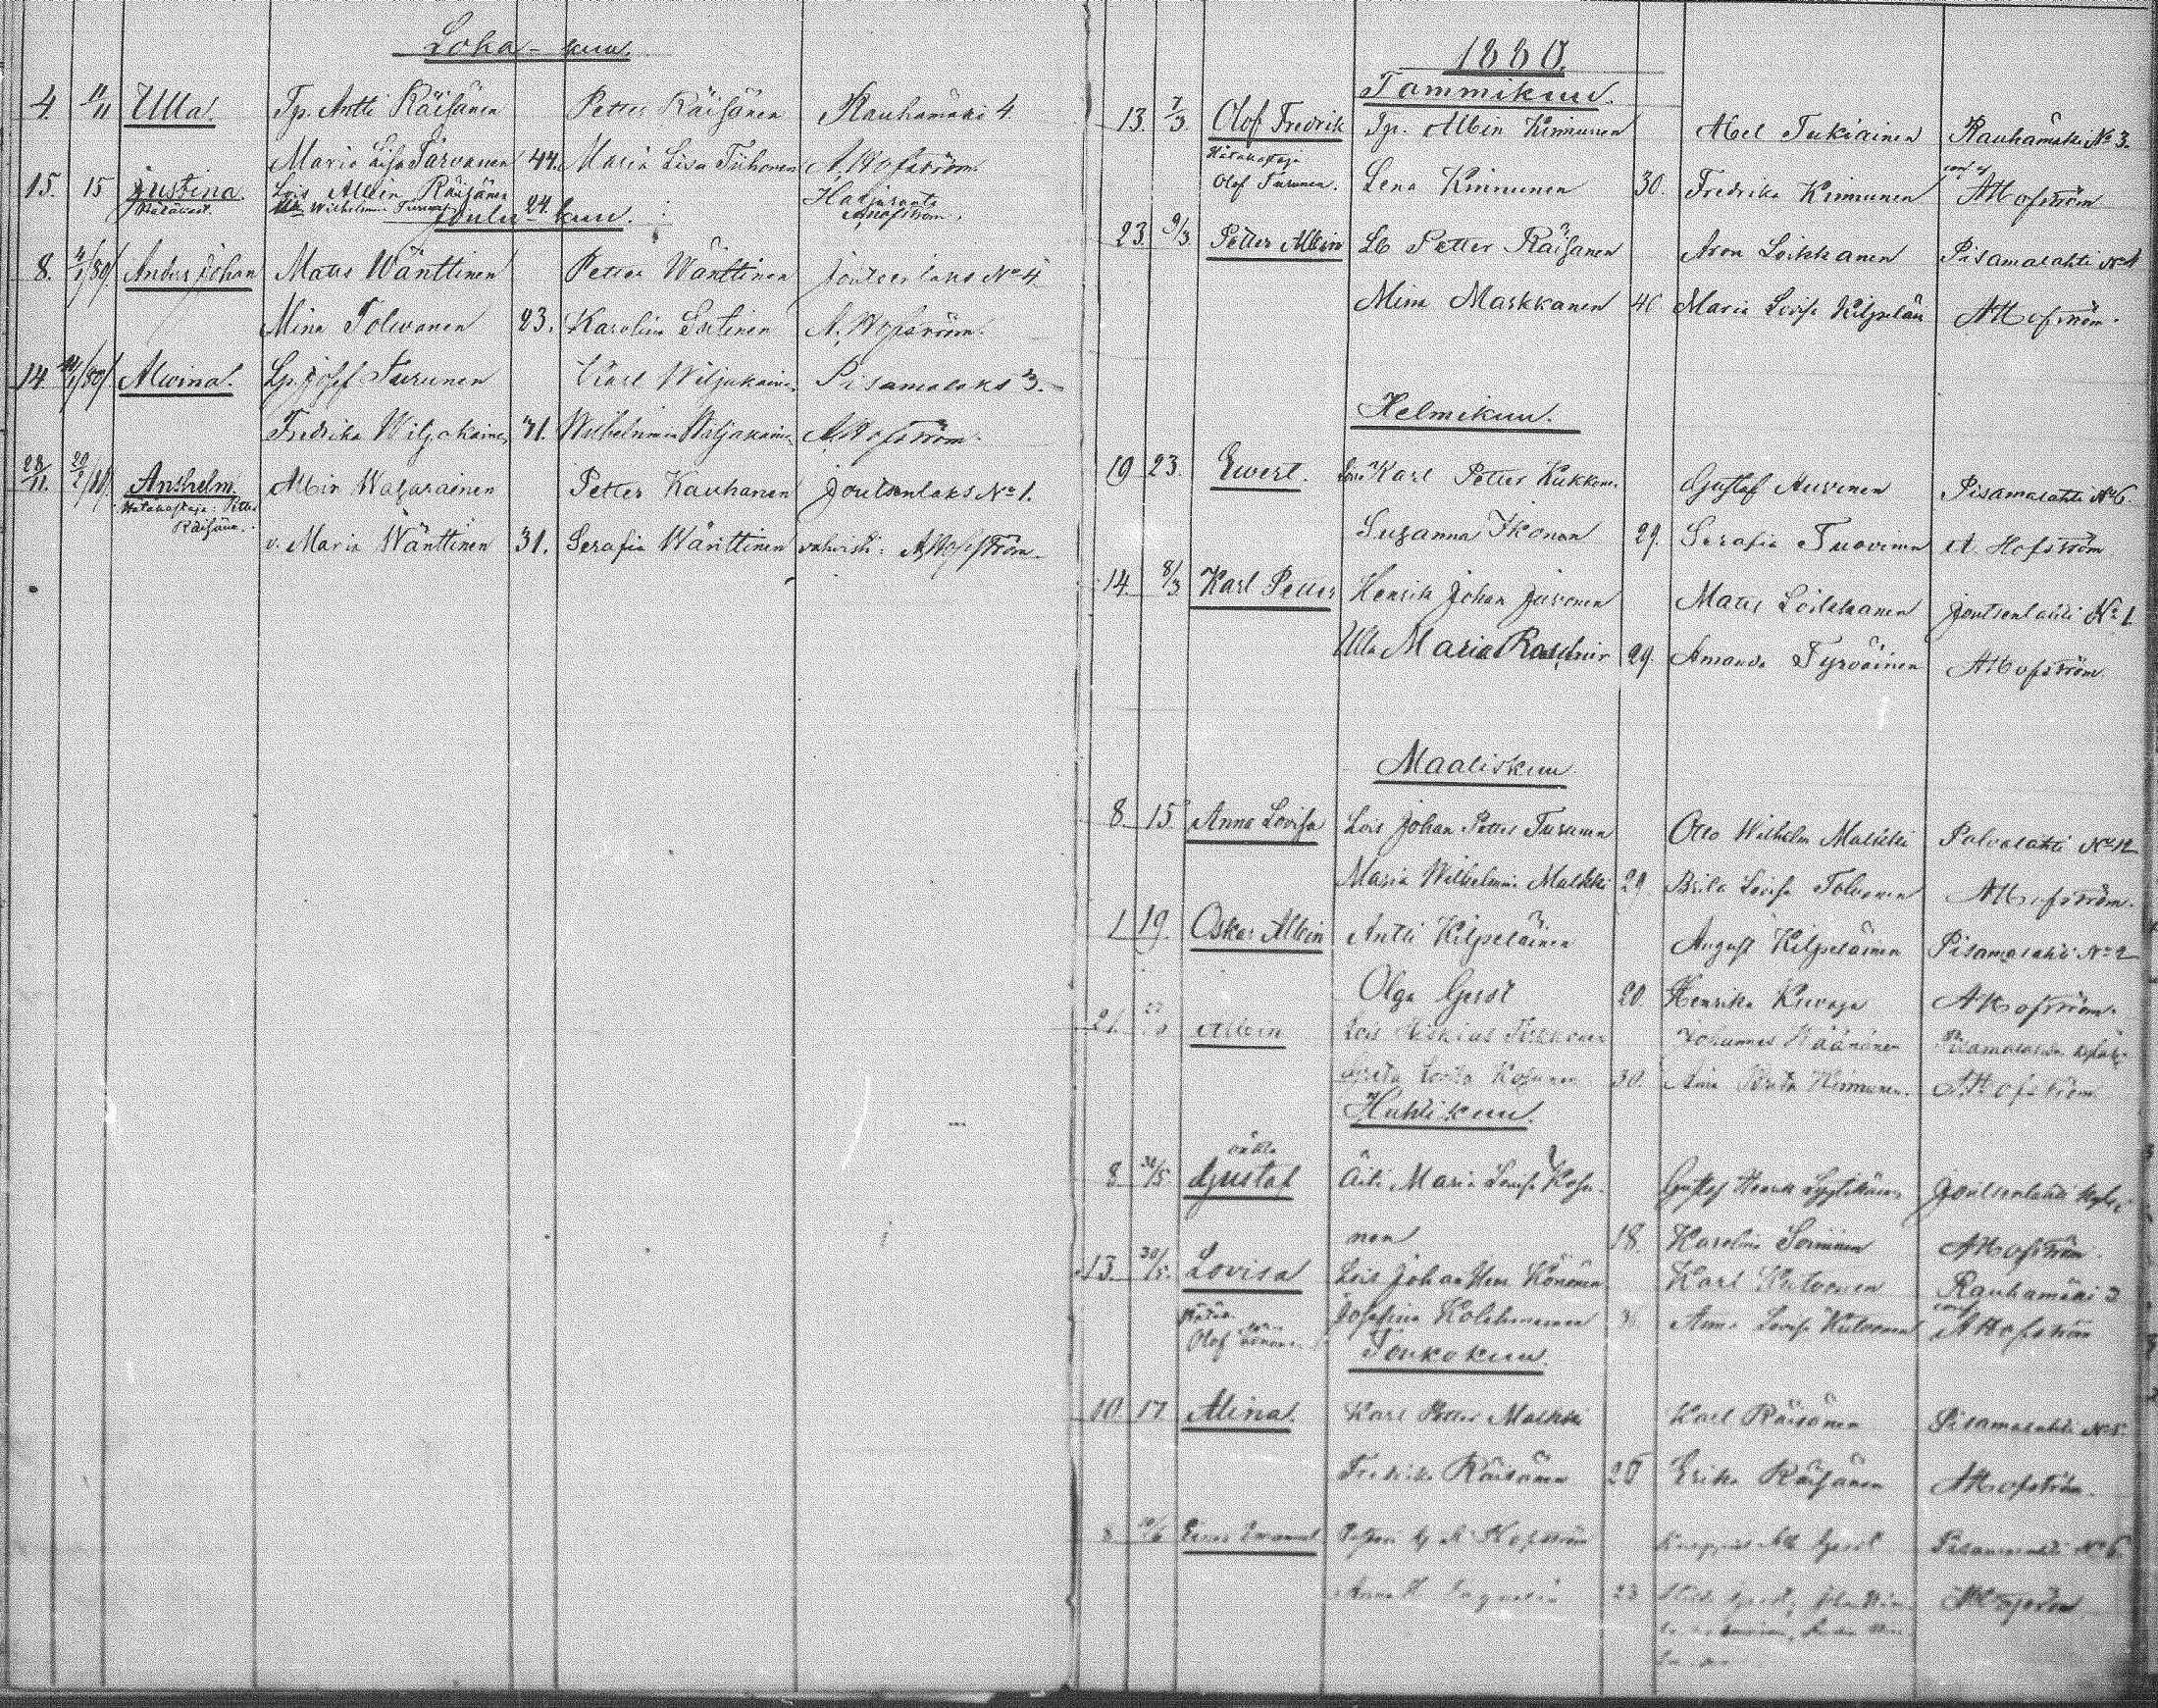 Loka-kuu.
4. 11/11 Ulla. Tp. Antti Räisänen Petter Räisänen Rauhamäki 4.
Maria Lisa Tarvanen 44. Maria Lisa Tiihonen A. Hofström.
15. 15 Justina Lois Albin Räisänen Harjuranta
Hätäkast. Wilhelmina Turunen 24. A. Hofström.
Joulu-kuu.
8. /80. Anders Johan Matts Wänttinen Petter Wänttinen Joutsenlaks No 4.
Mina Tolwanen 23. Karolina A. Hofström.
14. /80. Alwina. Lp. Josef Turunen Karl Wiljakainen Pisamalaks 3.
Fredrika Wiljakainen 31. Wilhelmina Wiljakainen A. Hofström.
28/11. /80. Anshelm Albin Wasarainen Petter Kauhanen Joutsenlaks No 1.
Hätäkastaja: Petter
Räisänen.
v. Maria Wänttinen 31. Serafia Wänttinen vahvisti: A. Hofström.
1880.
Tammikuu.
13. 7/3. Olof Fredrik Tp. Albin Kinnunen Abel Tukiainen Rauhamäki No 3.
Hätäkastaja
Olof Turunen. Lena Kinnunen 30. Fredrika Kinnunen A Hofström
23. 9/3. Petter Albin Lb Petter Räisänen Aron Loikkanen Pisamalahti No 4
Mina Markkanen 46 Maria Lovisa Kilpeläin A Hofström.
Helmikuu.
19 23. Ewert. Lois Karl Petter Kukkonen Gustaf Auvinen Pisamalahti No 6.
Susanna Ikonen 29. Serafia Tuovinen A. Hofström
14. 8/3 Karl Petter Henrik Johan Juvonen Matts Loikkanen Joutsenlahti No 1
Ulla Maria 29. Amanda Tyrväinen A Hofström.
Maaliskuu
8. 15. Anna Lovisa Lois Johan Petter Turunen Otto Wilhelm Malkki Palvalahti No 12
Maria Wilhelmina Malkki 29. Brita Lovisa Tolvanen A Hofström.
1 19. Oskar Albin Antti Kilpeläinen August Kilpeläinen Pisamalahti No 2
Olga Gerst 20. Henrika Kuvaja A Hofström.
21. Albin Lois Johannes Väänänen Pisamalahti
Lovisa Kosunen 30. Anna Brita Hirvonen. A. Hofström
Huhtikuu.
8 /5. Gustaf Äiti Maria Lovisa Kosu- Gustaf Henrik Lyytikäinen Joutsenlahti
nen 18. Karolina Soininen A Hofström.
13. 30/5. Lovisa Lois Johan Könönen Karl Kutvonen Rauhamäki 3
Hätäk. Josefina Kolehmainen Anna Lovisa Kutvonen A Hofström
Olof
Toukokuu.
10 17 Alina. Karl Petter Malkki Karl Räisänen Pisamalahti No 5.
Fredrika Räisänen 28 Erika Räisänen A Hofström.
8. /6 Emanuel A. Hofström Gerst Pisamalahti No 6.
Anna 23 A Hofström